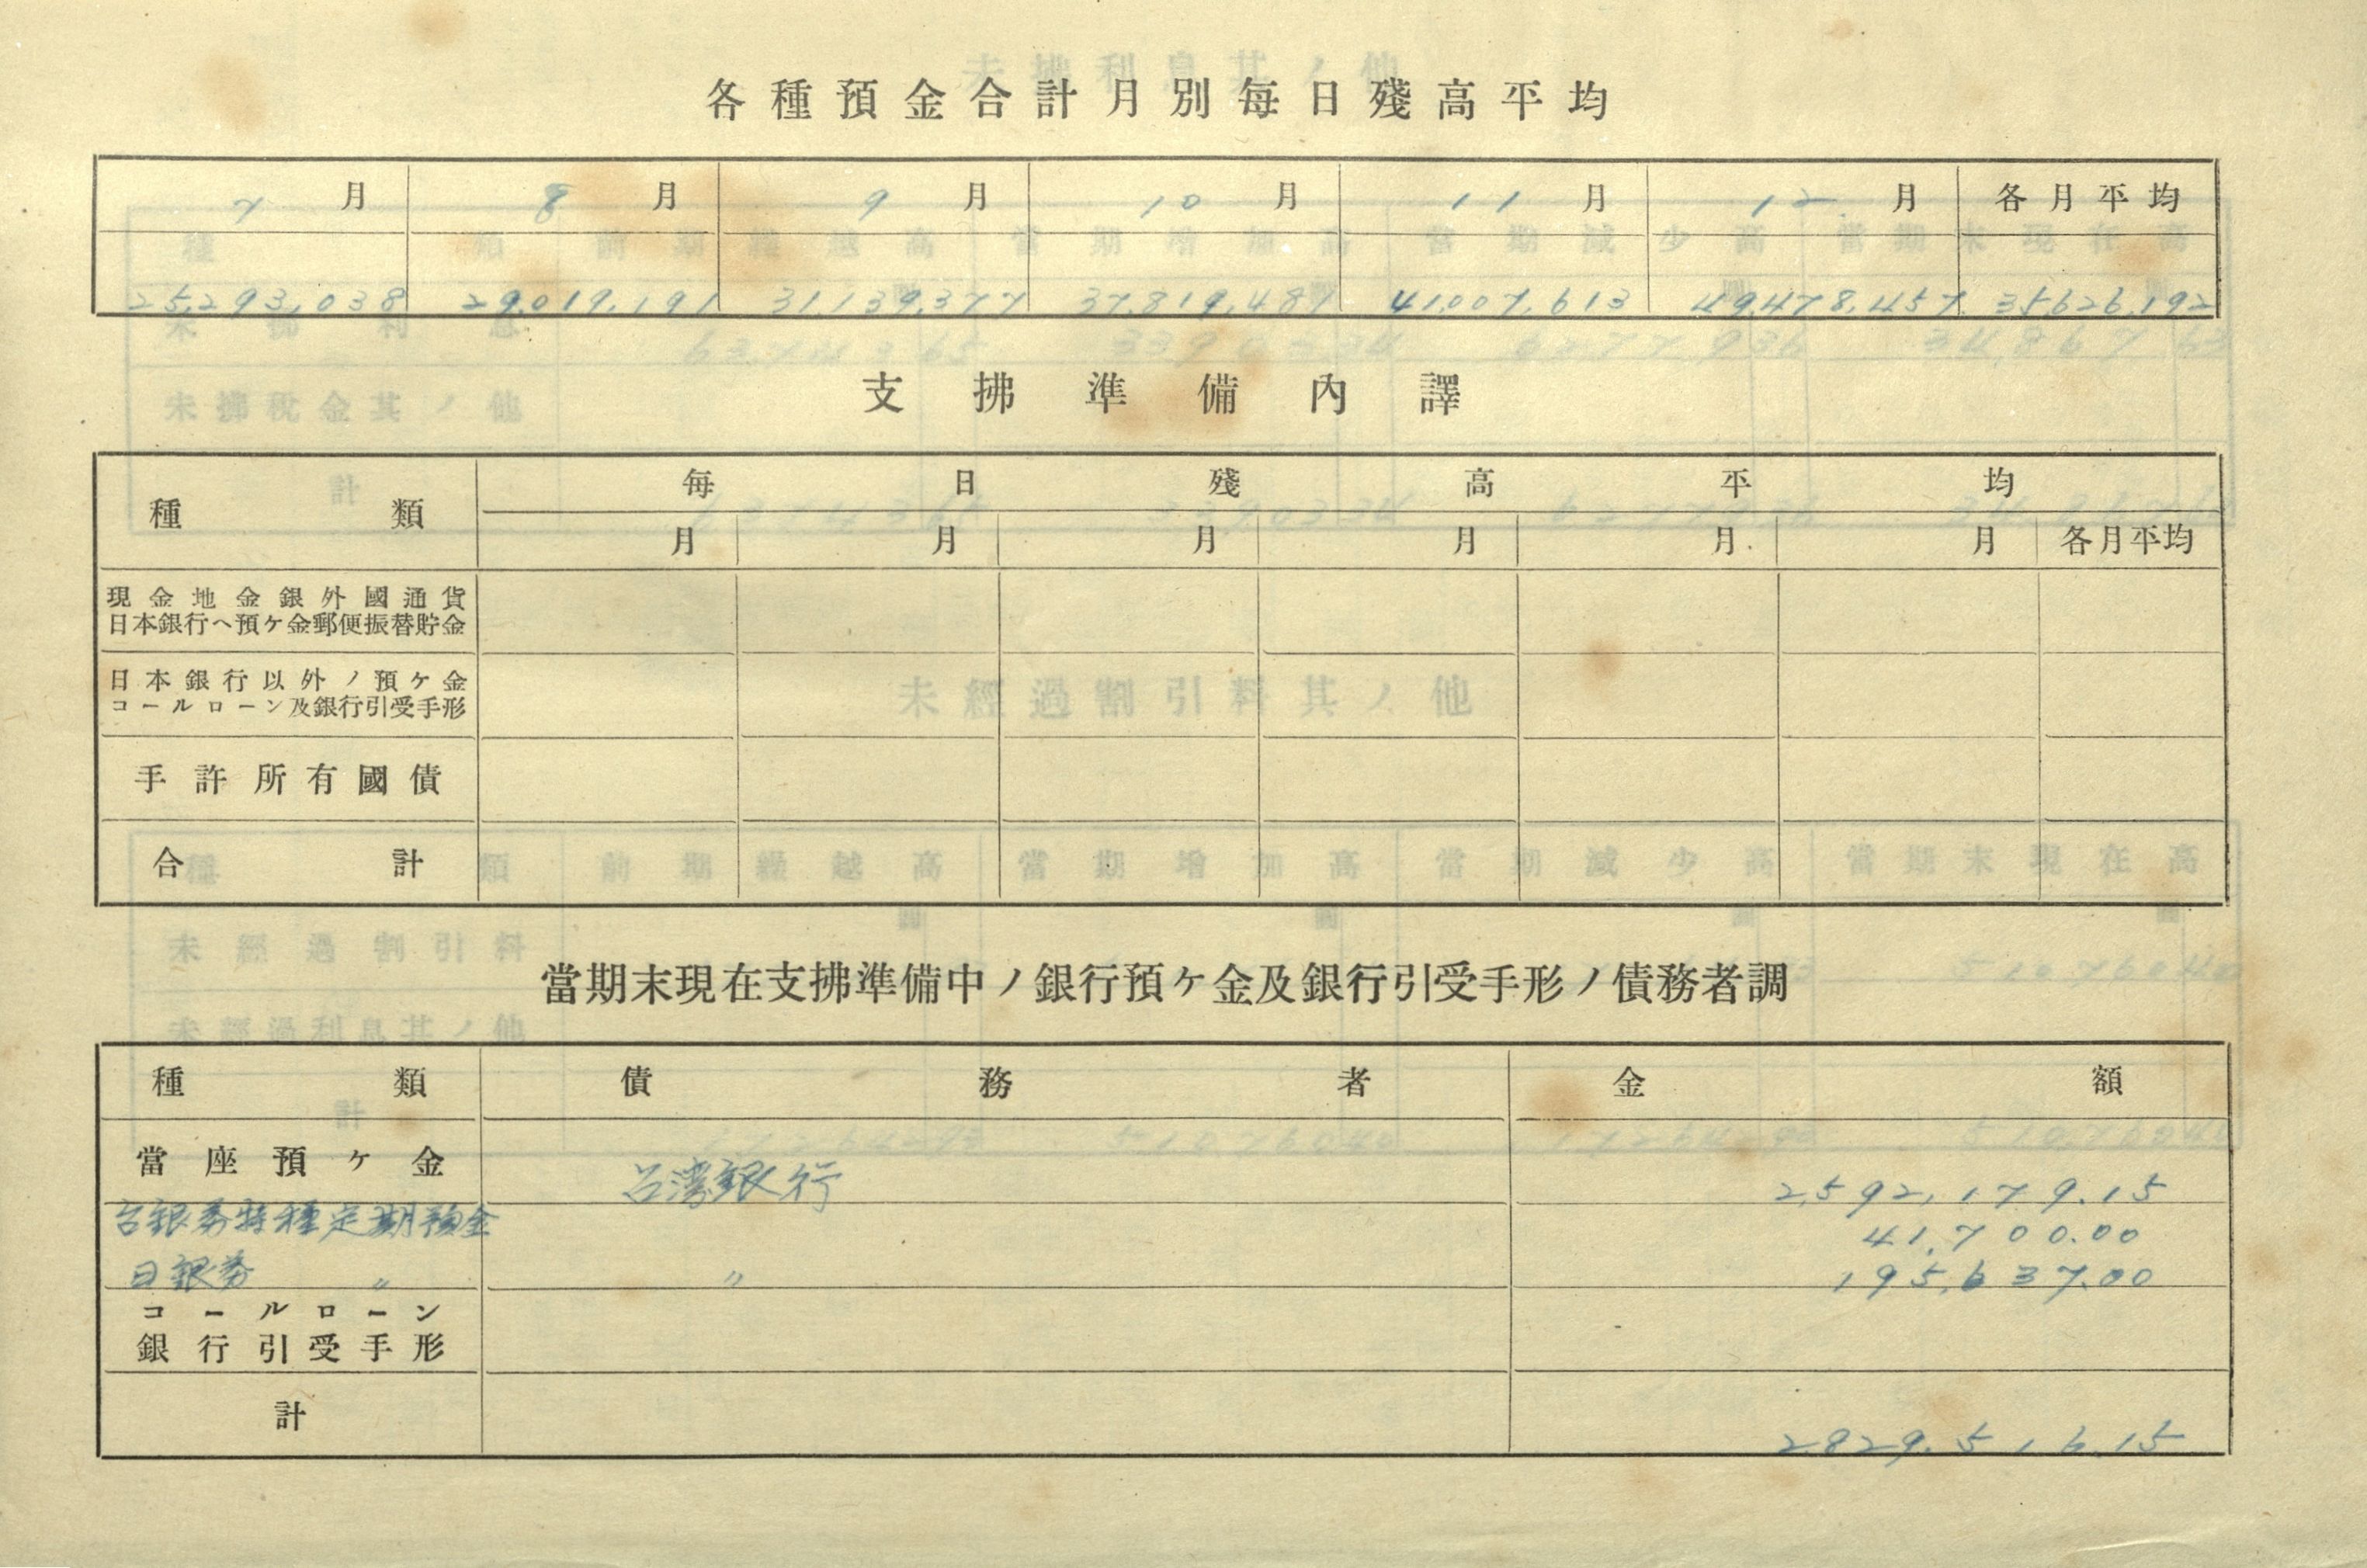 各種預金合計月別每日殘高平均
7月 8月 9月 10月 11月 12月 各月平均
25,293,038 29,019,191 31,139,377 37,819,481 41,007,613 49,478,457 35,626,192
支拂準備內譯
種類 每日殘高平均
月 月 月 月 月 月 各月平均
現金地金銀外國通貨
日本銀行ヘ預ケ金郵便振替貯金
日本銀行以外ノ預ケ金
コールローン及銀行引受手形
手許所有國債
合計
當期末現在支拂準備中ノ銀行預ケ金及銀行引受手形ノ債務者調
種類 債務者 金額
當座預ケ金 台湾銀行 2,592,179.15
台銀券特種定期預金 41,700.00
日銀券 〃 〃 195,637.00
コールローン
銀行引受手形
計 2829,516.15